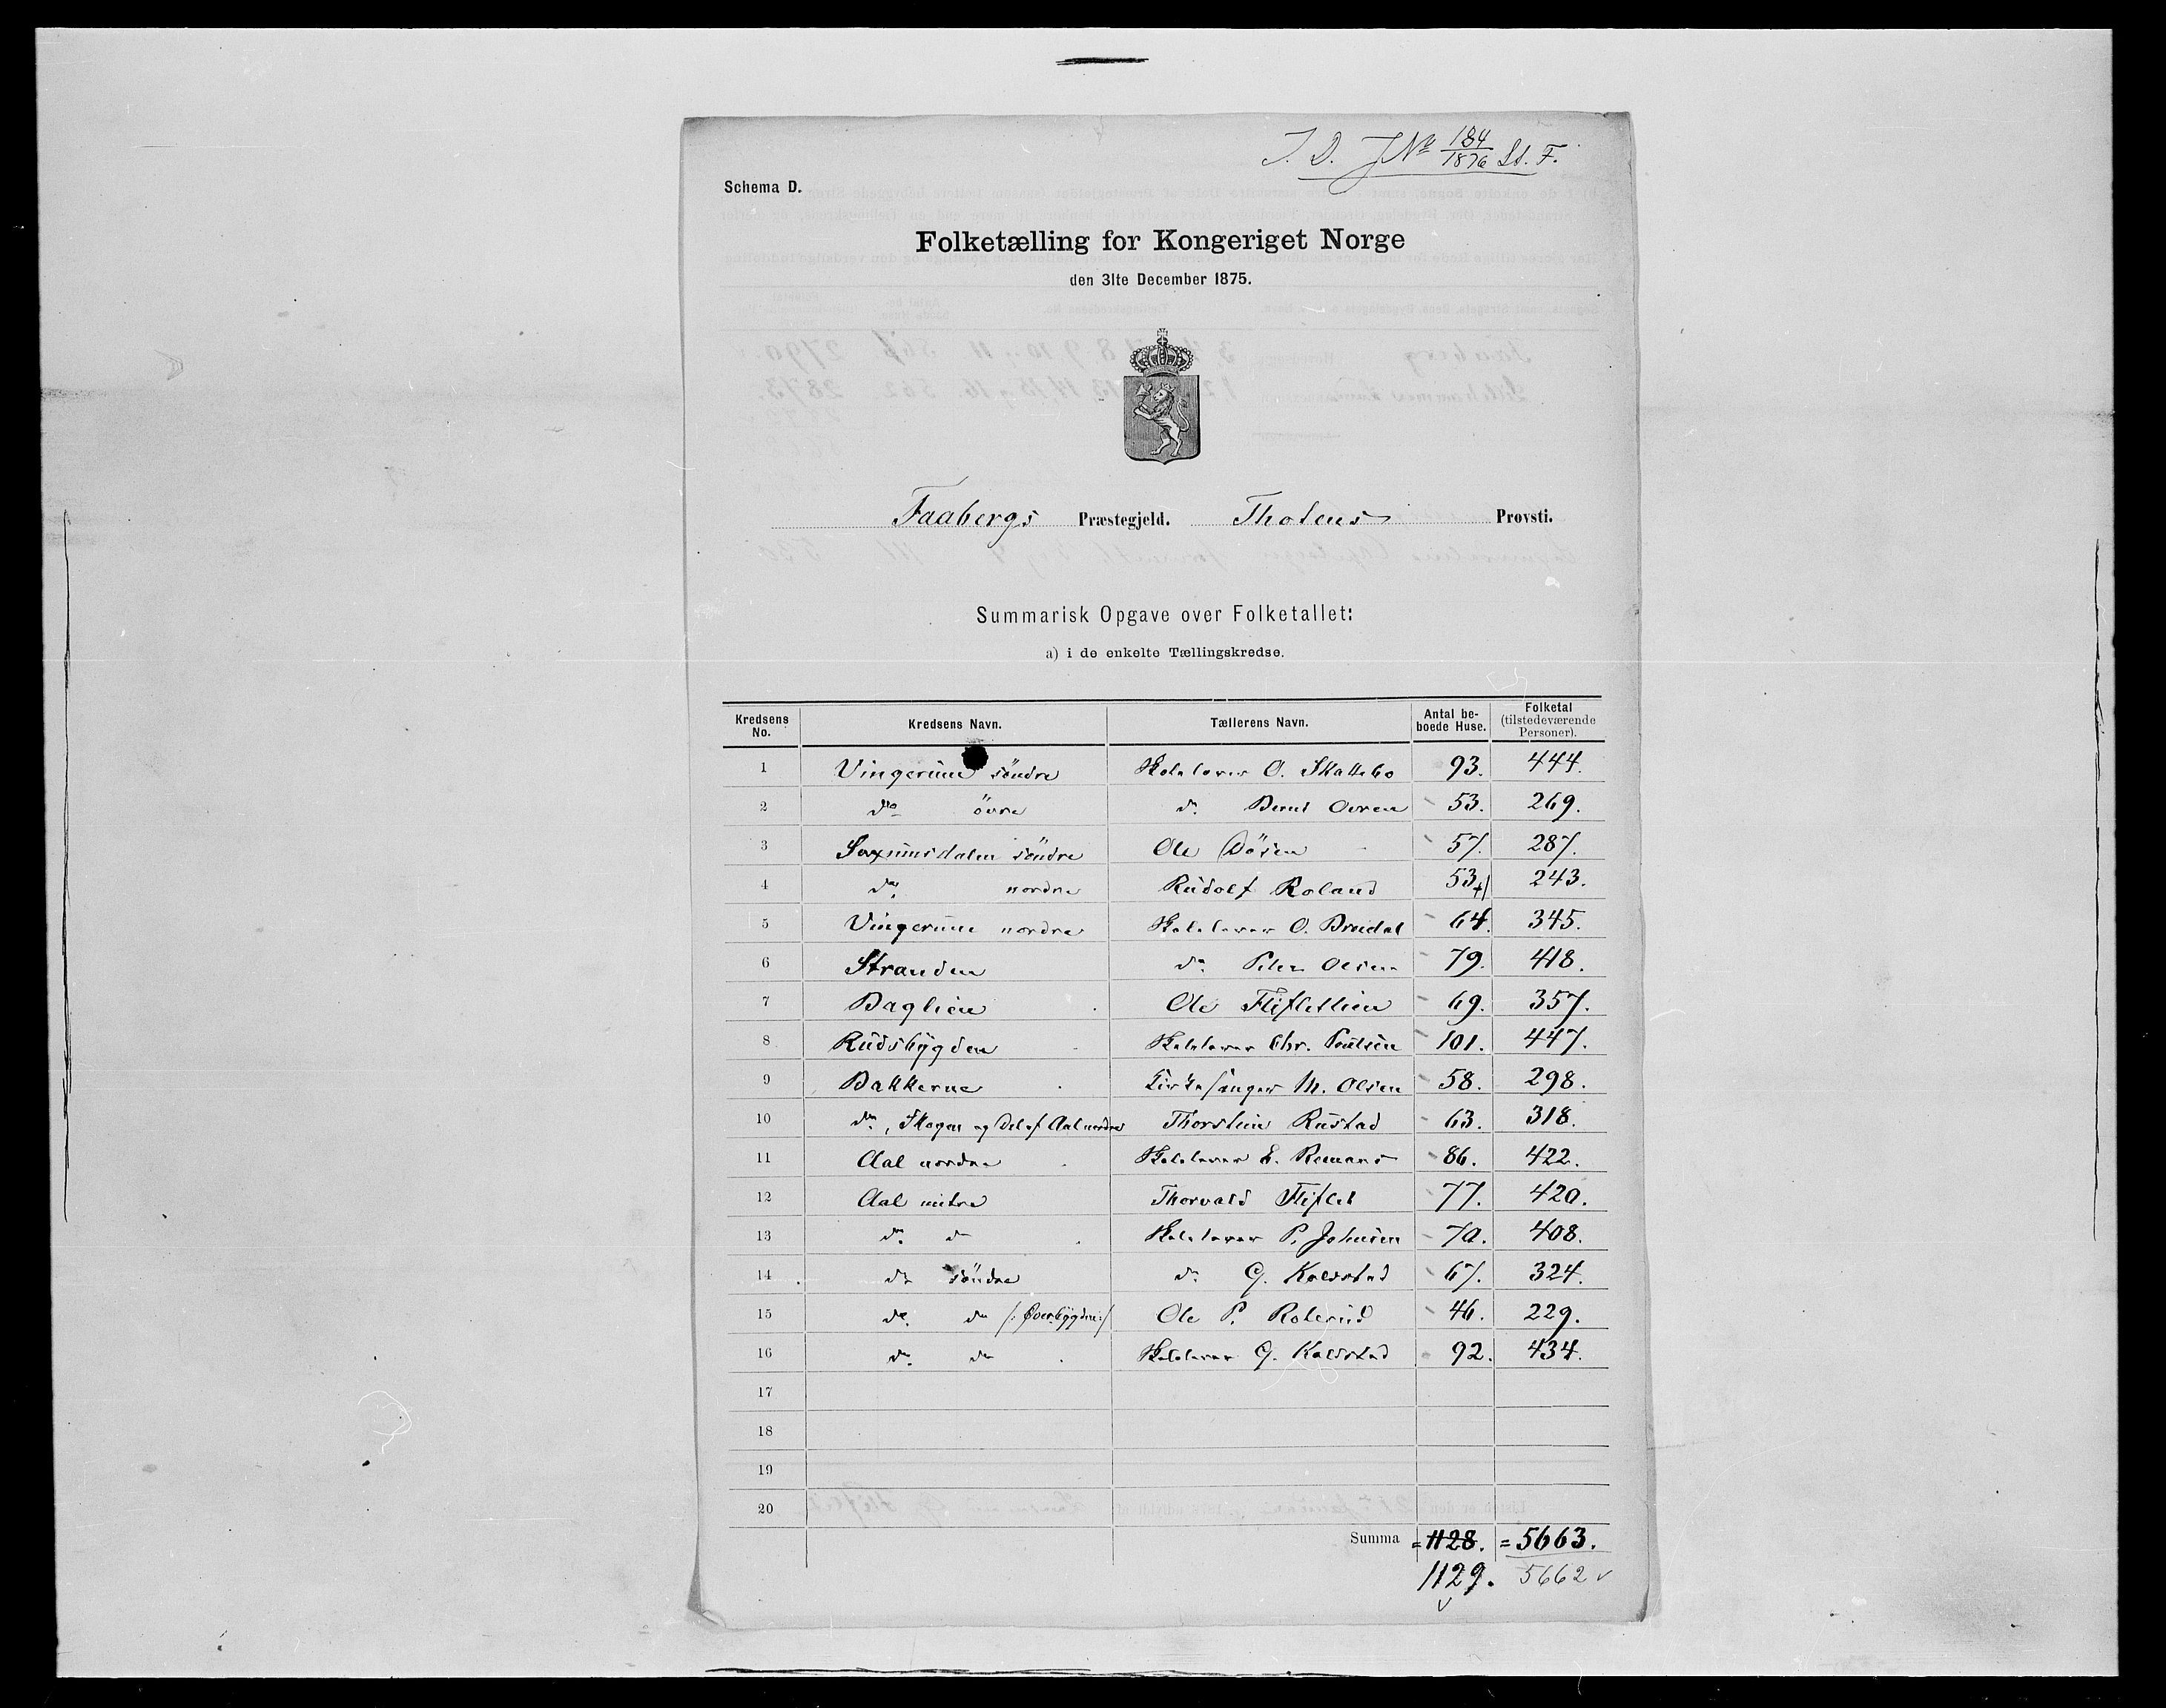 I. D. J No 184/1876 Sd. F.
Schema D.
Folketælling for Kongeriget Norge
den 31te December 1875.
Faabergs Præstegjeld. Thotens Provsti.
Summarisk Opgave over Folketallet:
a) i de enkelte Tællingskredse.
Kredsens No. Kredsens Navn. Tællerens Navn. Antal beboede Huse. Folketal (tilstedeværende Personer).
1 Vingerum söndre Skolelærer O. Skattebo 93. 444.
2 do övre do Bernt Oeren 53. 269.
3 Saxumsdalen söndre Ole Dösen 57. 287.
4 do. nordre Rudolf Roland 53+1 243.
5 Vingerum nordre Skolelærer O. Bredal 64. 345.
6 Stranden do Peter Olsen 79. 418.
7 Baglien Ole Flifletlien 69. 357.
8 Rudsbygden Skolelærer Chr. Poulsen 101. 447.
9 Bakkerne Kirkesanger M. Olsen 58. 298.
10 do, Skogen og Del af Aal nordre Thorstein Rustad 63. 318.
11 Aal nordre Skolelærer E. 86. 422.
12 Aal mitre Thorvald Fliflet 77. 420.
13 do. do Skolelærer P. Johnsen 70. 408.
14 do söndre do G. Koldstad 67. 324.
15 do. do /: Överbygden :/ Ole P. Rolerud 46. 229.
16 do. do Skolelærer G. Koldstad 92. 434.
17
18
19
20
Summa = 1128. = 5663.
1129. 5662 v